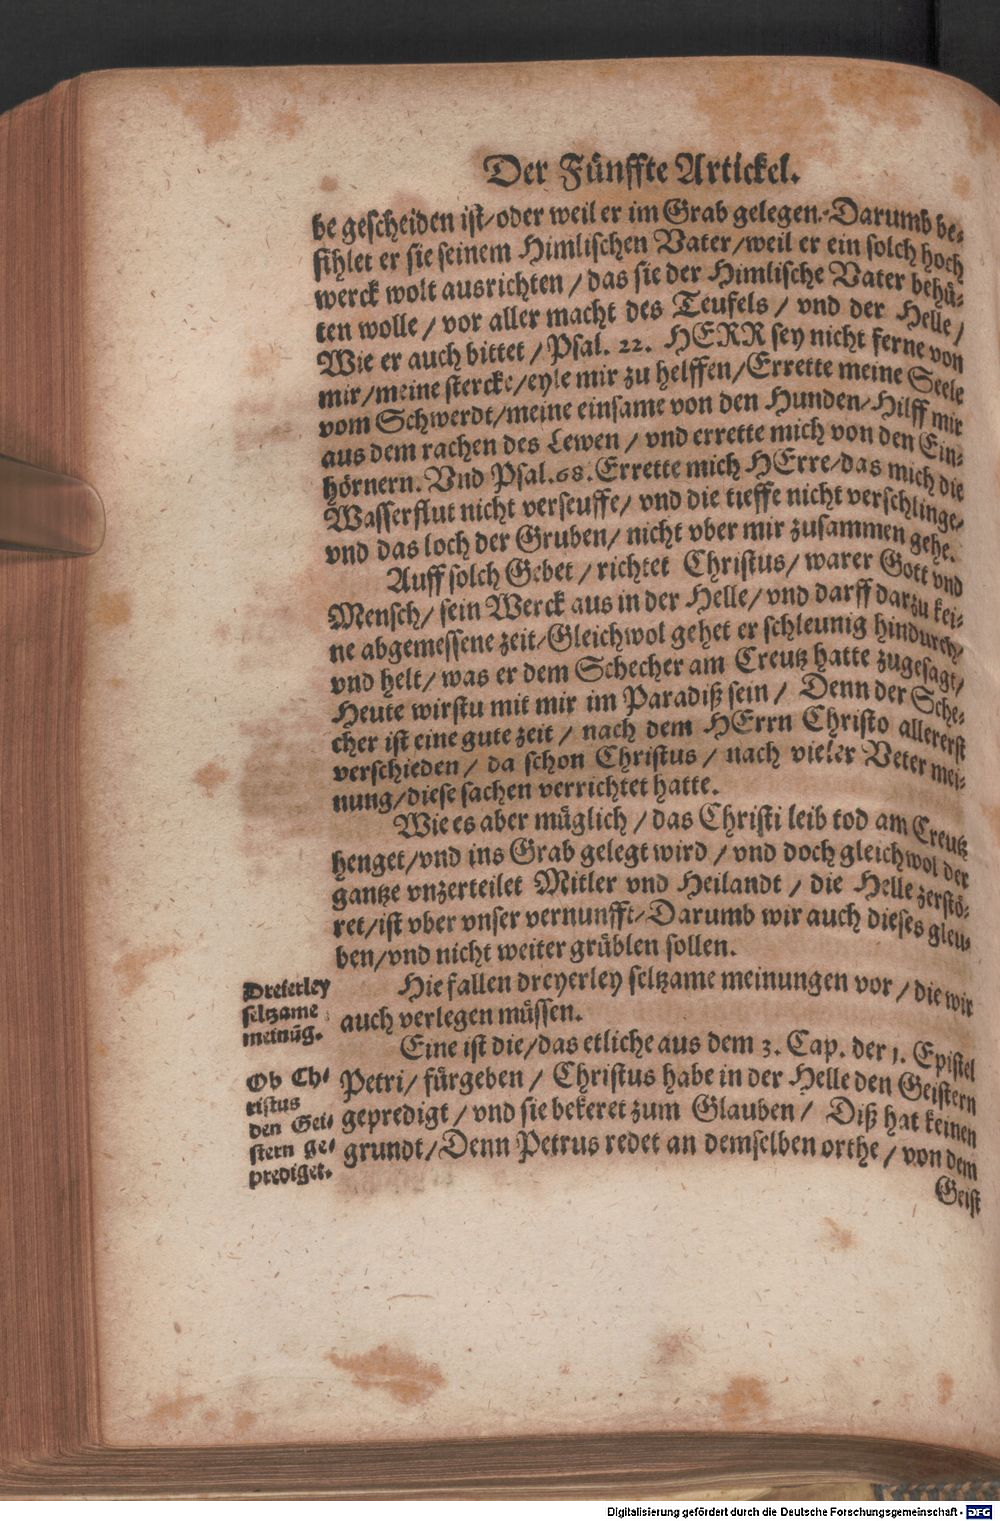 Der Fünffte Artickel.
be gescheiden ist/oder weil er im Grab gelegen. Darumb be-
fihlet er sie seinem Himlischen Vater/weil er ein solch hoch
werck wolt ausrichten / das sie der Himlische Vater behü-
ten wolle / vor aller macht des Teufels / vnd der Helle /
Wie er auch bittet / Psal. 22. HERR sey nicht ferne von
mir/meine stercke/eyle mir zu helffen/Errette meine Seele
vom Schwerdt/meine einsame von den Hunden/Hilff mir
aus dem rachen des Lewen / vnd errette mich von den Ein-
hörnern. Vnd Psal. 68. Errette mich HErre/das mich die
Wasserflut nicht verseuffe/ vnd die tieffe nicht verschlinge/
vnd das loch der Gruben/ nicht vber mir zusammen gehe.
Auff solch Gebet / richtet Christus/ warer Gott vnd
Mensch/ sein Werck aus in der Helle/ vnd darff darzu kei-
ne abgemessene zeit/Gleichwol gehet er schleunig hindurch/
vnd helt/ was er dem Schecher am Creutz hatte zugesagt/
Heute wirstu mit mir im Paradiß sein / Denn der Sche-
cher ist eine gute zeit / nach dem HErrn Christo allererst
verschieden / da schon Christus / nach vieler Veter mei-
nung/diese sachen verrichtet hatte.
Wie es aber müglich / das Christi leib tod am Creutz
henget/vnd ins Grab gelegt wird / vnd doch gleichwol der
gantze vnzerteilet Mitler vnd Heilandt / die Helle zerstö-
ret/ist vber vnser vernunfft/Darumb wir auch dieses gleu-
ben/vnd nicht weiter grüblen sollen.
Dreierley
seltzame
meinũg.
Hie fallen dreyerley seltzame meinungen vor / die wir
auch verlegen müssen.
Ob Chri-
stus
den Gei-
stern ge-
prediget.
Eine ist die/das etliche aus dem 3. Cap. der 1. Epistel
Petri/ fürgeben / Christus habe in der Helle den Geistern
gepredigt / vnd sie bekeret zum Glauben / Diß hat keinen
grundt/Denn Petrus redet an demselben orthe / von dem
Geist
Digitalisierung gefördert durch die Deutsche Forschungsgemeinschaft - DFG